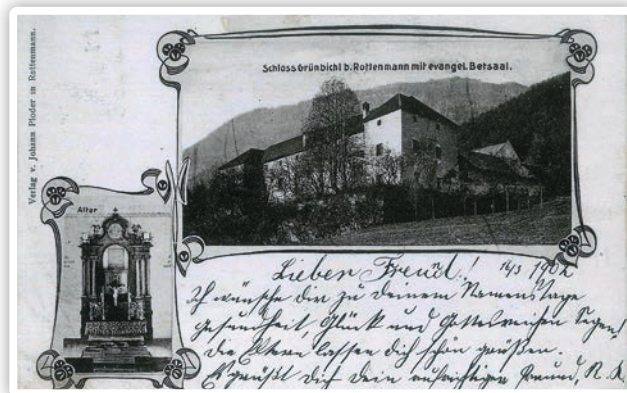 Verlag v. Johann Ploder in Rottenmann.
Schloss Grünbichl b. Rottenmann mit evangel. Betsaal.
Altar
Lieber Freund! 16/3 1902
Ich wünsche dir zu deinem Namenstage
Gesundheit, Glück und Gottesreichen Segen!
die Eltern lassen dich schön grüßen.
Es grüßt dich dein aufrichtiger Freund, R. A.